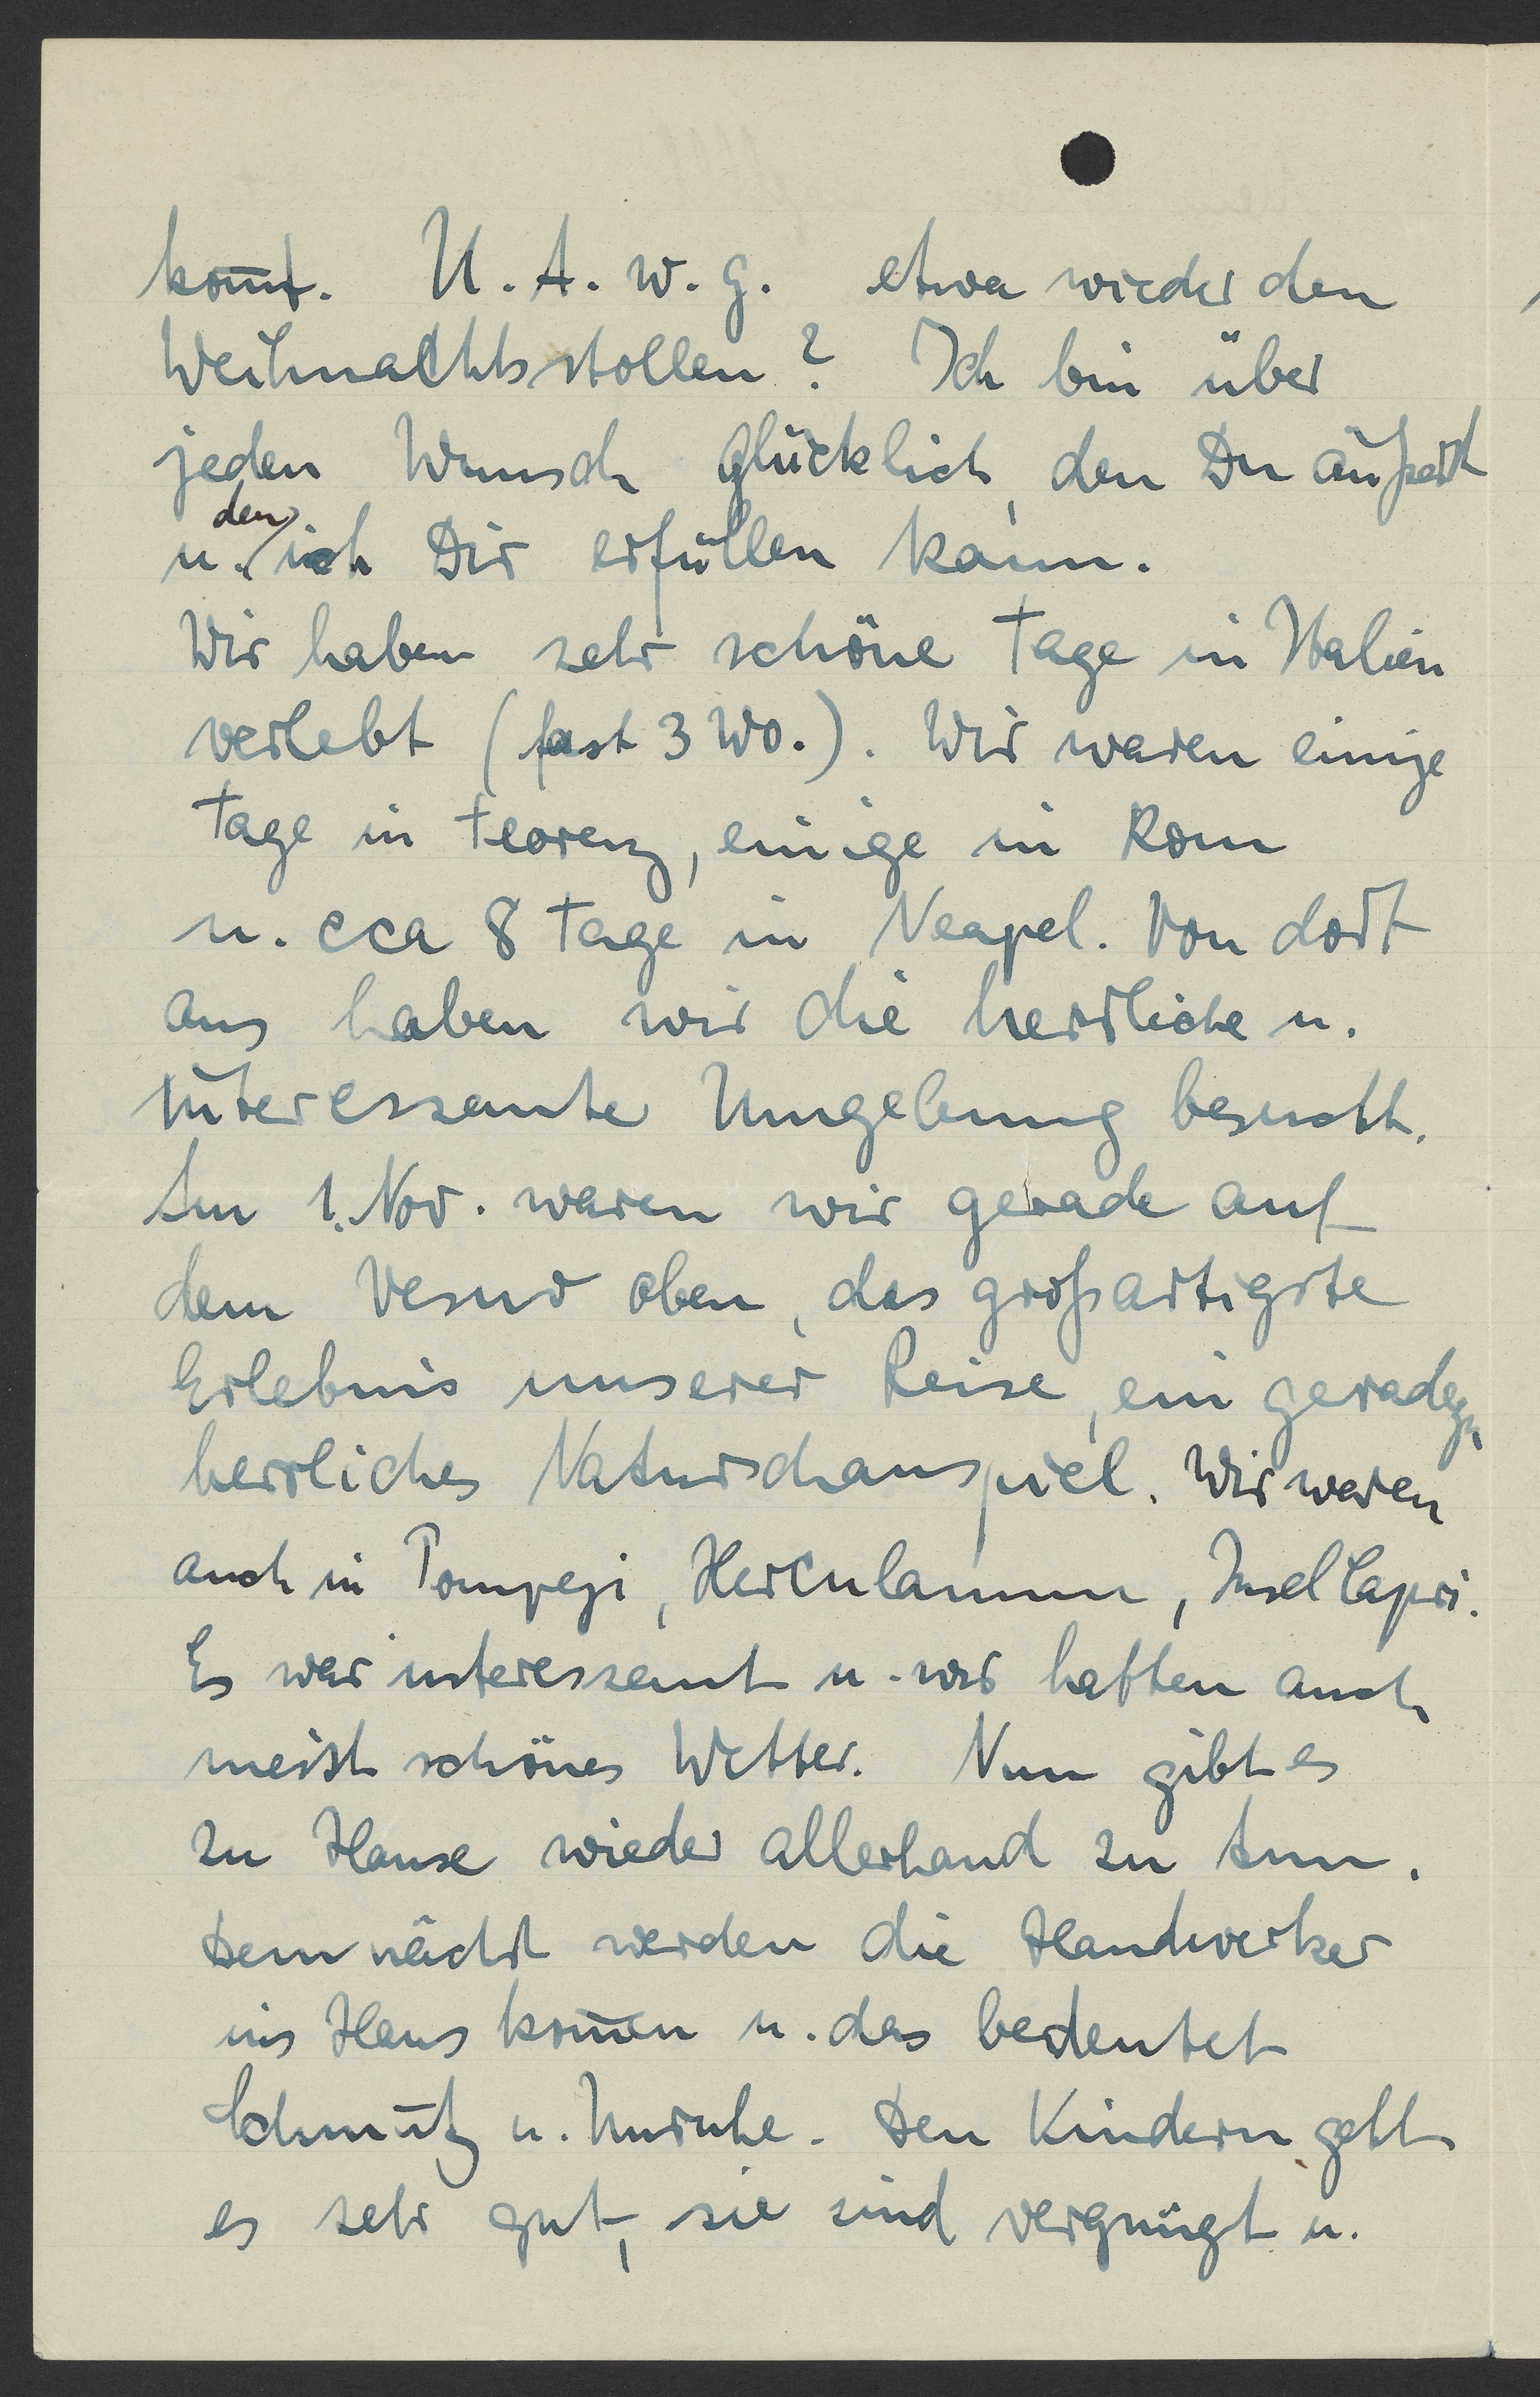 kom̄t. U. A. w. g. etwa wieder den
Weihnachtsstollen? Ich bin über
jeden Wunsch glücklich, den Du äußerst
u. den ich Dir erfüllen kann.
Wir haben sehr schöne Tage in Italien
verlebt (fast 3 Wo.). Wir waren einige
Tage in Florenz, einige in Rom
u. cca 8 Tage in Neapel. Von dort
aus haben wir die herrliche u.
interessante Umgebung besucht.
Am 1. Nov. waren wir gerade auf
dem Vesuv oben, das großartigste
Erlebnis unserer Reise, ein geradezu
herrliches Naturschauspiel. Wir waren
auch in Pompeji, Herculanum, Insel Capri.
Es war interessant u. wir hatten auch
meist schönes Wetter. Nun gibt es
zu Hause wieder allerhand zu tun.
Demnächst werden die Handwerker
ins Haus kom̄en u. das bedeutet
Schmutz u. Unruhe. Den Kindern geht
es sehr gut, sie sind vergnügt u.